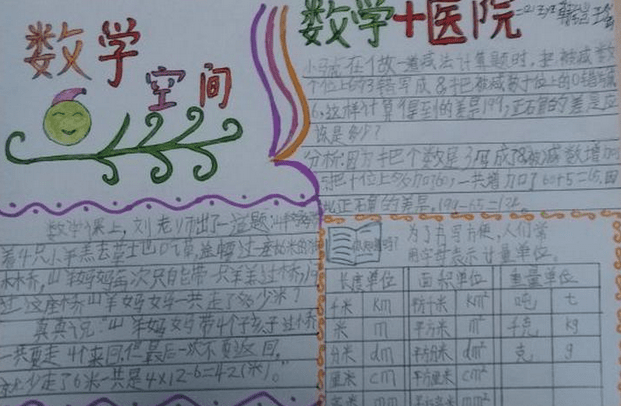 数学
空间
数学+医院
小马虎在做一道减法计算题时，把被减数
个位上的3错写成8，把被减数十位上的0错写成
6，这样计算得到的差是199，正确的差应
该是多少？
分析：因为把个数是3写成8被减数增加
5，把十位上 一共增加了60+5=65，因
此正确的差是，199-65=134。
数学课上，刘老师出了一道题：山羊妈妈
着4只小羊羔去草地吃草，
木桥，山羊妈妈每次只能带一只羊羔过桥，
过这座桥山羊妈妈一共走了多少米？
真真说：山羊妈妈带4个孩子过桥
一共要走4个来回，但最后一次不要返回，
就少走了6米一共是4×12-6=42（米）。
你知道吗？
为了书写方便，人们常
用字母表示计量单位。
长度单位 面积单位 重量单位
千米 km 平方千米 km² 吨 t
米 m 平方米 m² 千克 kg
分米 dm 平方分米 dm² 克 g
厘米 cm 平方厘米 cm²
毫米 mm 平方毫米 mm²